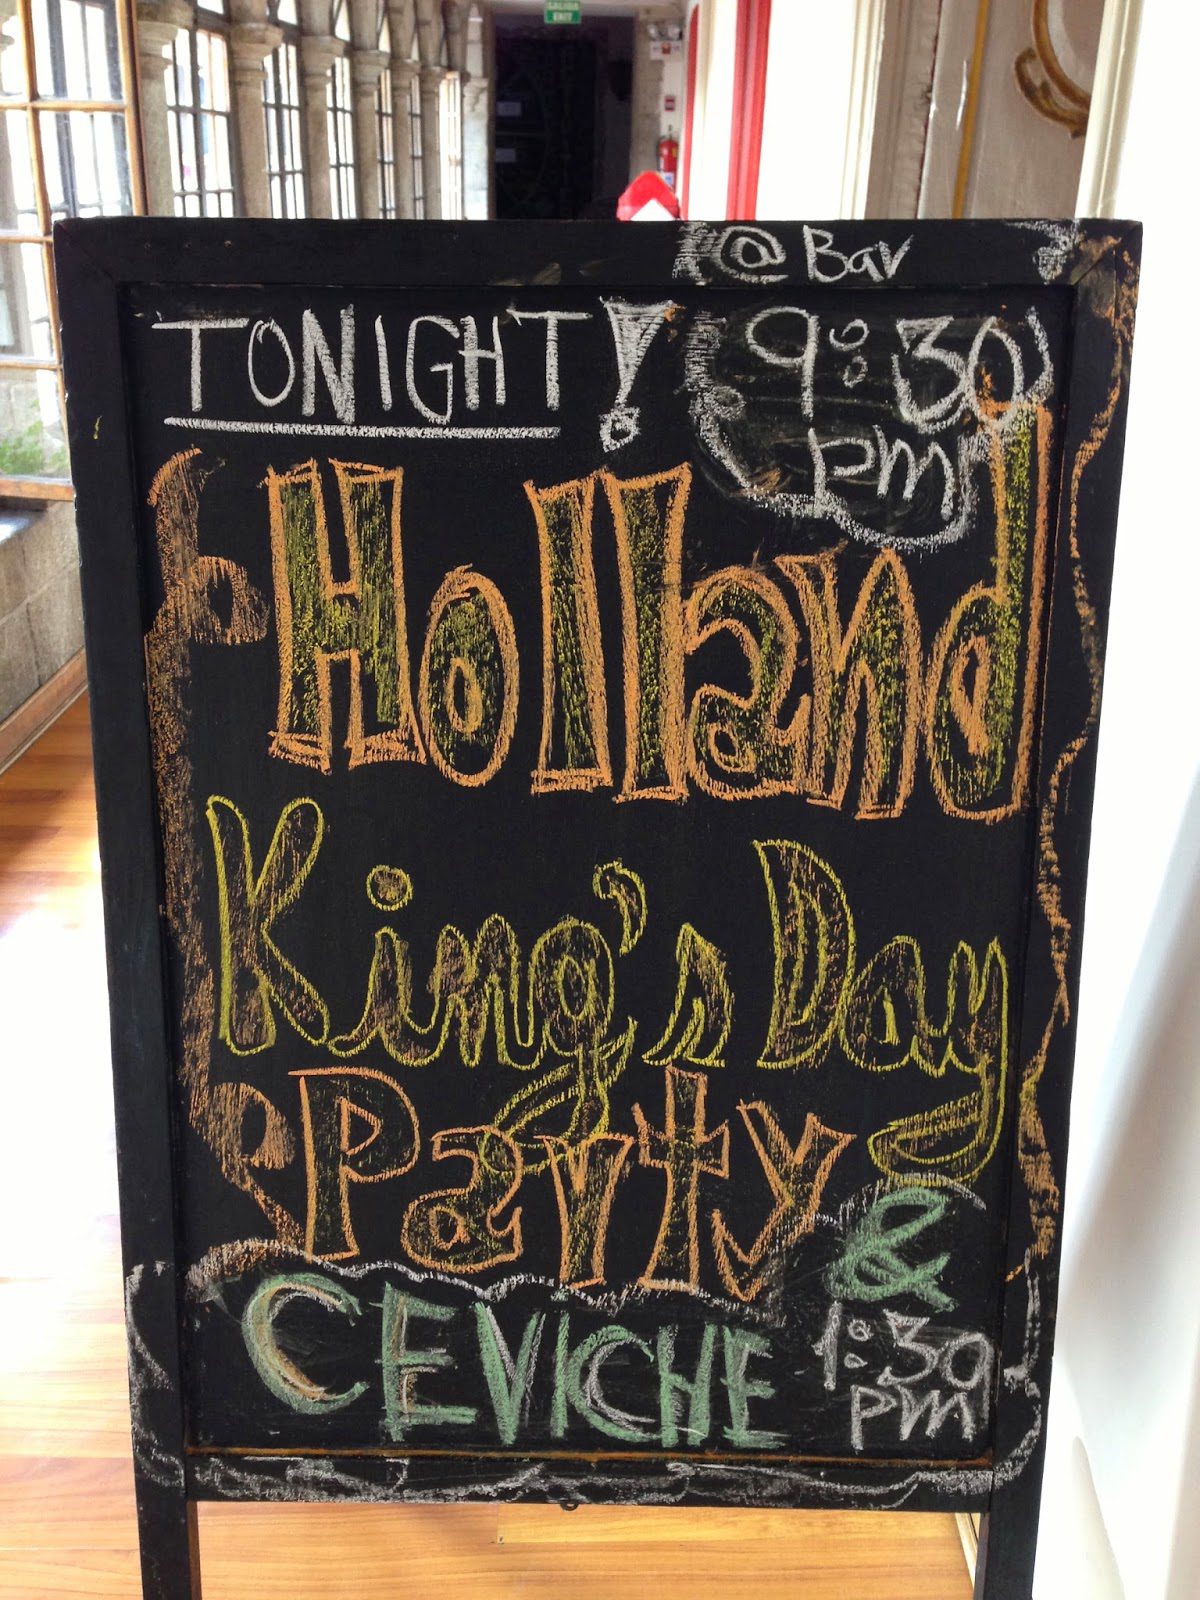 SALIDA
EXIT
@ Bar
TONIGHT! 9:30
pm
Holland
King's Day
Party &
CEVICHE 1:30
pm